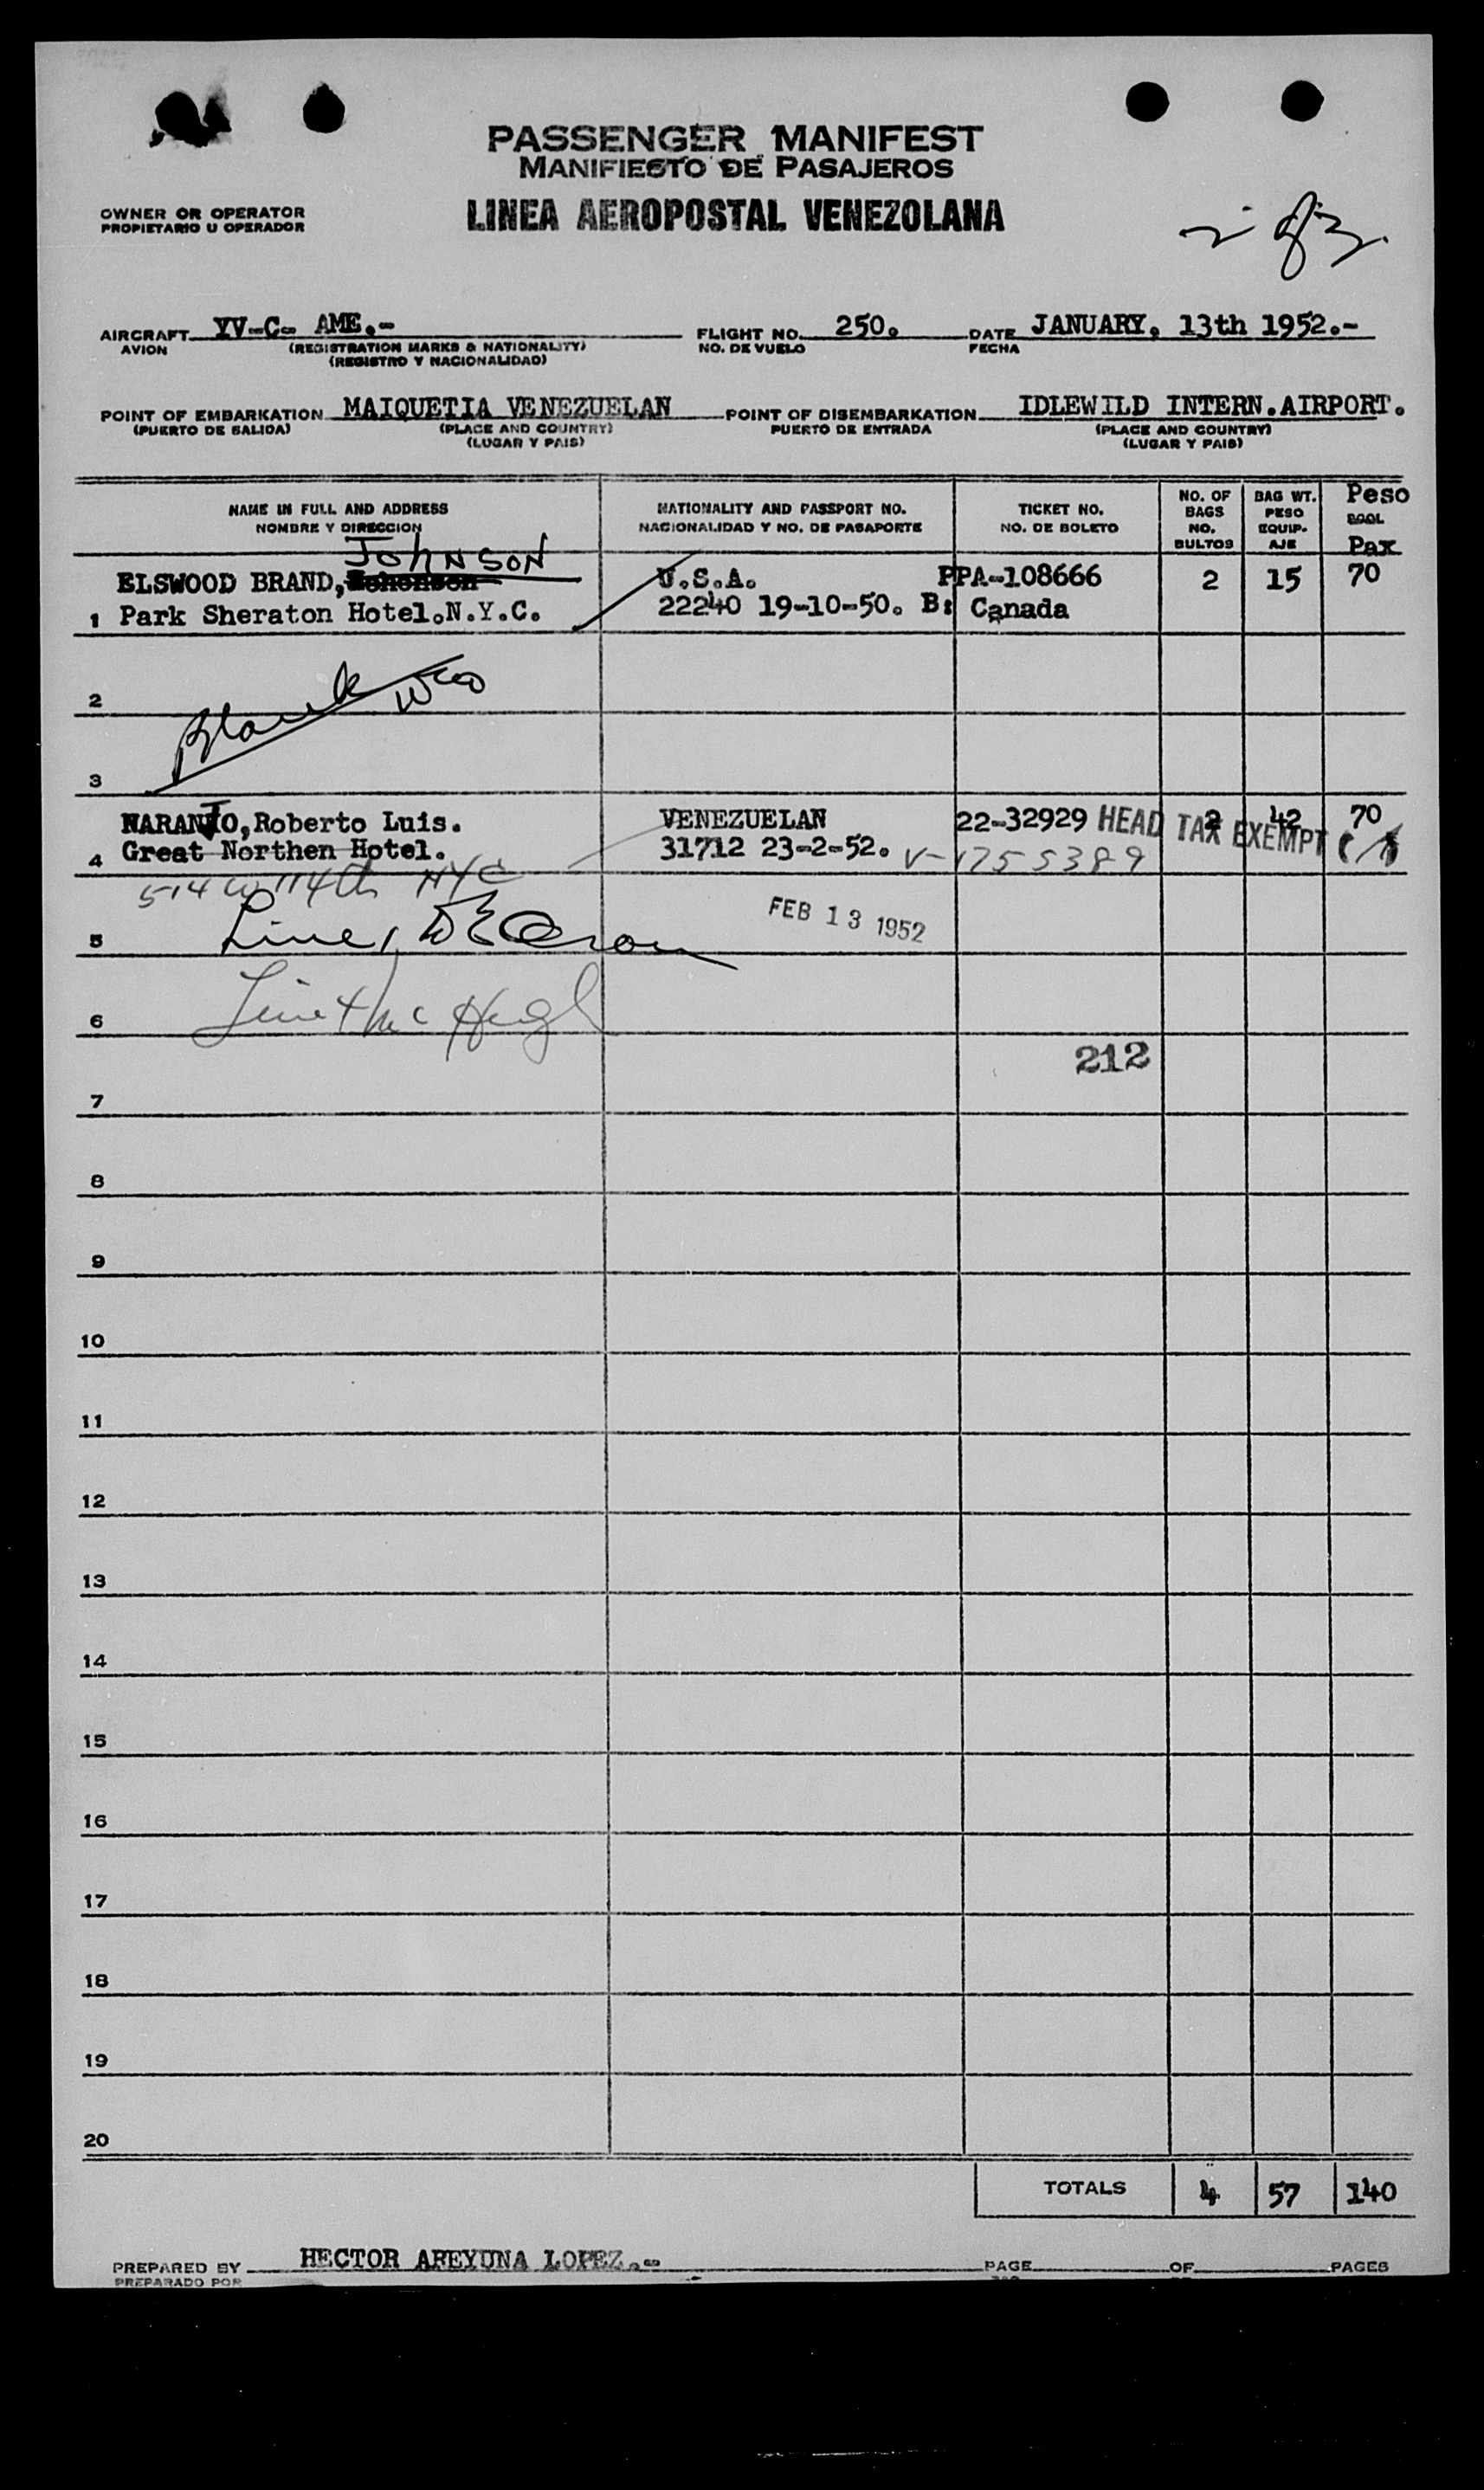 PASSENGER MANIFEST
MANIFIESTO DE PASAJEROS
OWNER OR OPERATOR
PROPIETARIO U OPERADOR
LINEA AEROPOSTAL VENEZOLANA
2 of 3.
AIRCRAFT YV-C- AME.- FLIGHT NO. 250. DATE JANUARY, 13th 1952.-
AVION (REGISTRATION MARKS & NATIONALITY) NO. DE VUELO FECHA
(REGISTRO Y NACIONALIDAD)
POINT OF EMBARKATION MAIQUETIA VENEZUELAN POINT OF DISEMBARKATION IDLEWILD INTERN.AIRPORT.
(PUERTO DE SALIDA) (PLACE AND COUNTRY) PUERTO DE ENTRADA (PLACE AND COUNTRY)
(LUGAR Y PAIS) (LUGAR Y PAIS)
NAME IN FULL AND ADDRESS NATIONALITY AND PASSPORT NO. TICKET NO. NO. OF BAGS BAG WT. Peso
NOMBRE Y DIRECCION NACIONALIDAD Y NO. DE PASAPORTE NO. DE BOLETO NO. BULTOS PESO EQUIP-AJE Pax
JOHNSON
ELSWOOD BRAND, U.S.A. PPA-108666 2 15 70
1 Park Sheraton Hotel.N.Y.C. 22240 19-10-50. B: Canada
2
Blank
3
NARANJO, Roberto Luis. VENEZUELAN 22-32929 HEAD TAX EXEMPT 2 42 70
4 Great Northen Hotel. 31712 23-2-52. V-1755389
514 W 114th NYC
FEB 13 1952
5 Line 1
6 Line 4
212
7
8
9
10
11
12
13
14
15
16
17
18
19
20
TOTALS 4 57 140
PREPARED BY HECTOR AREYUNA LOPEZ.- PAGE OF PAGES
PREPARADO POR